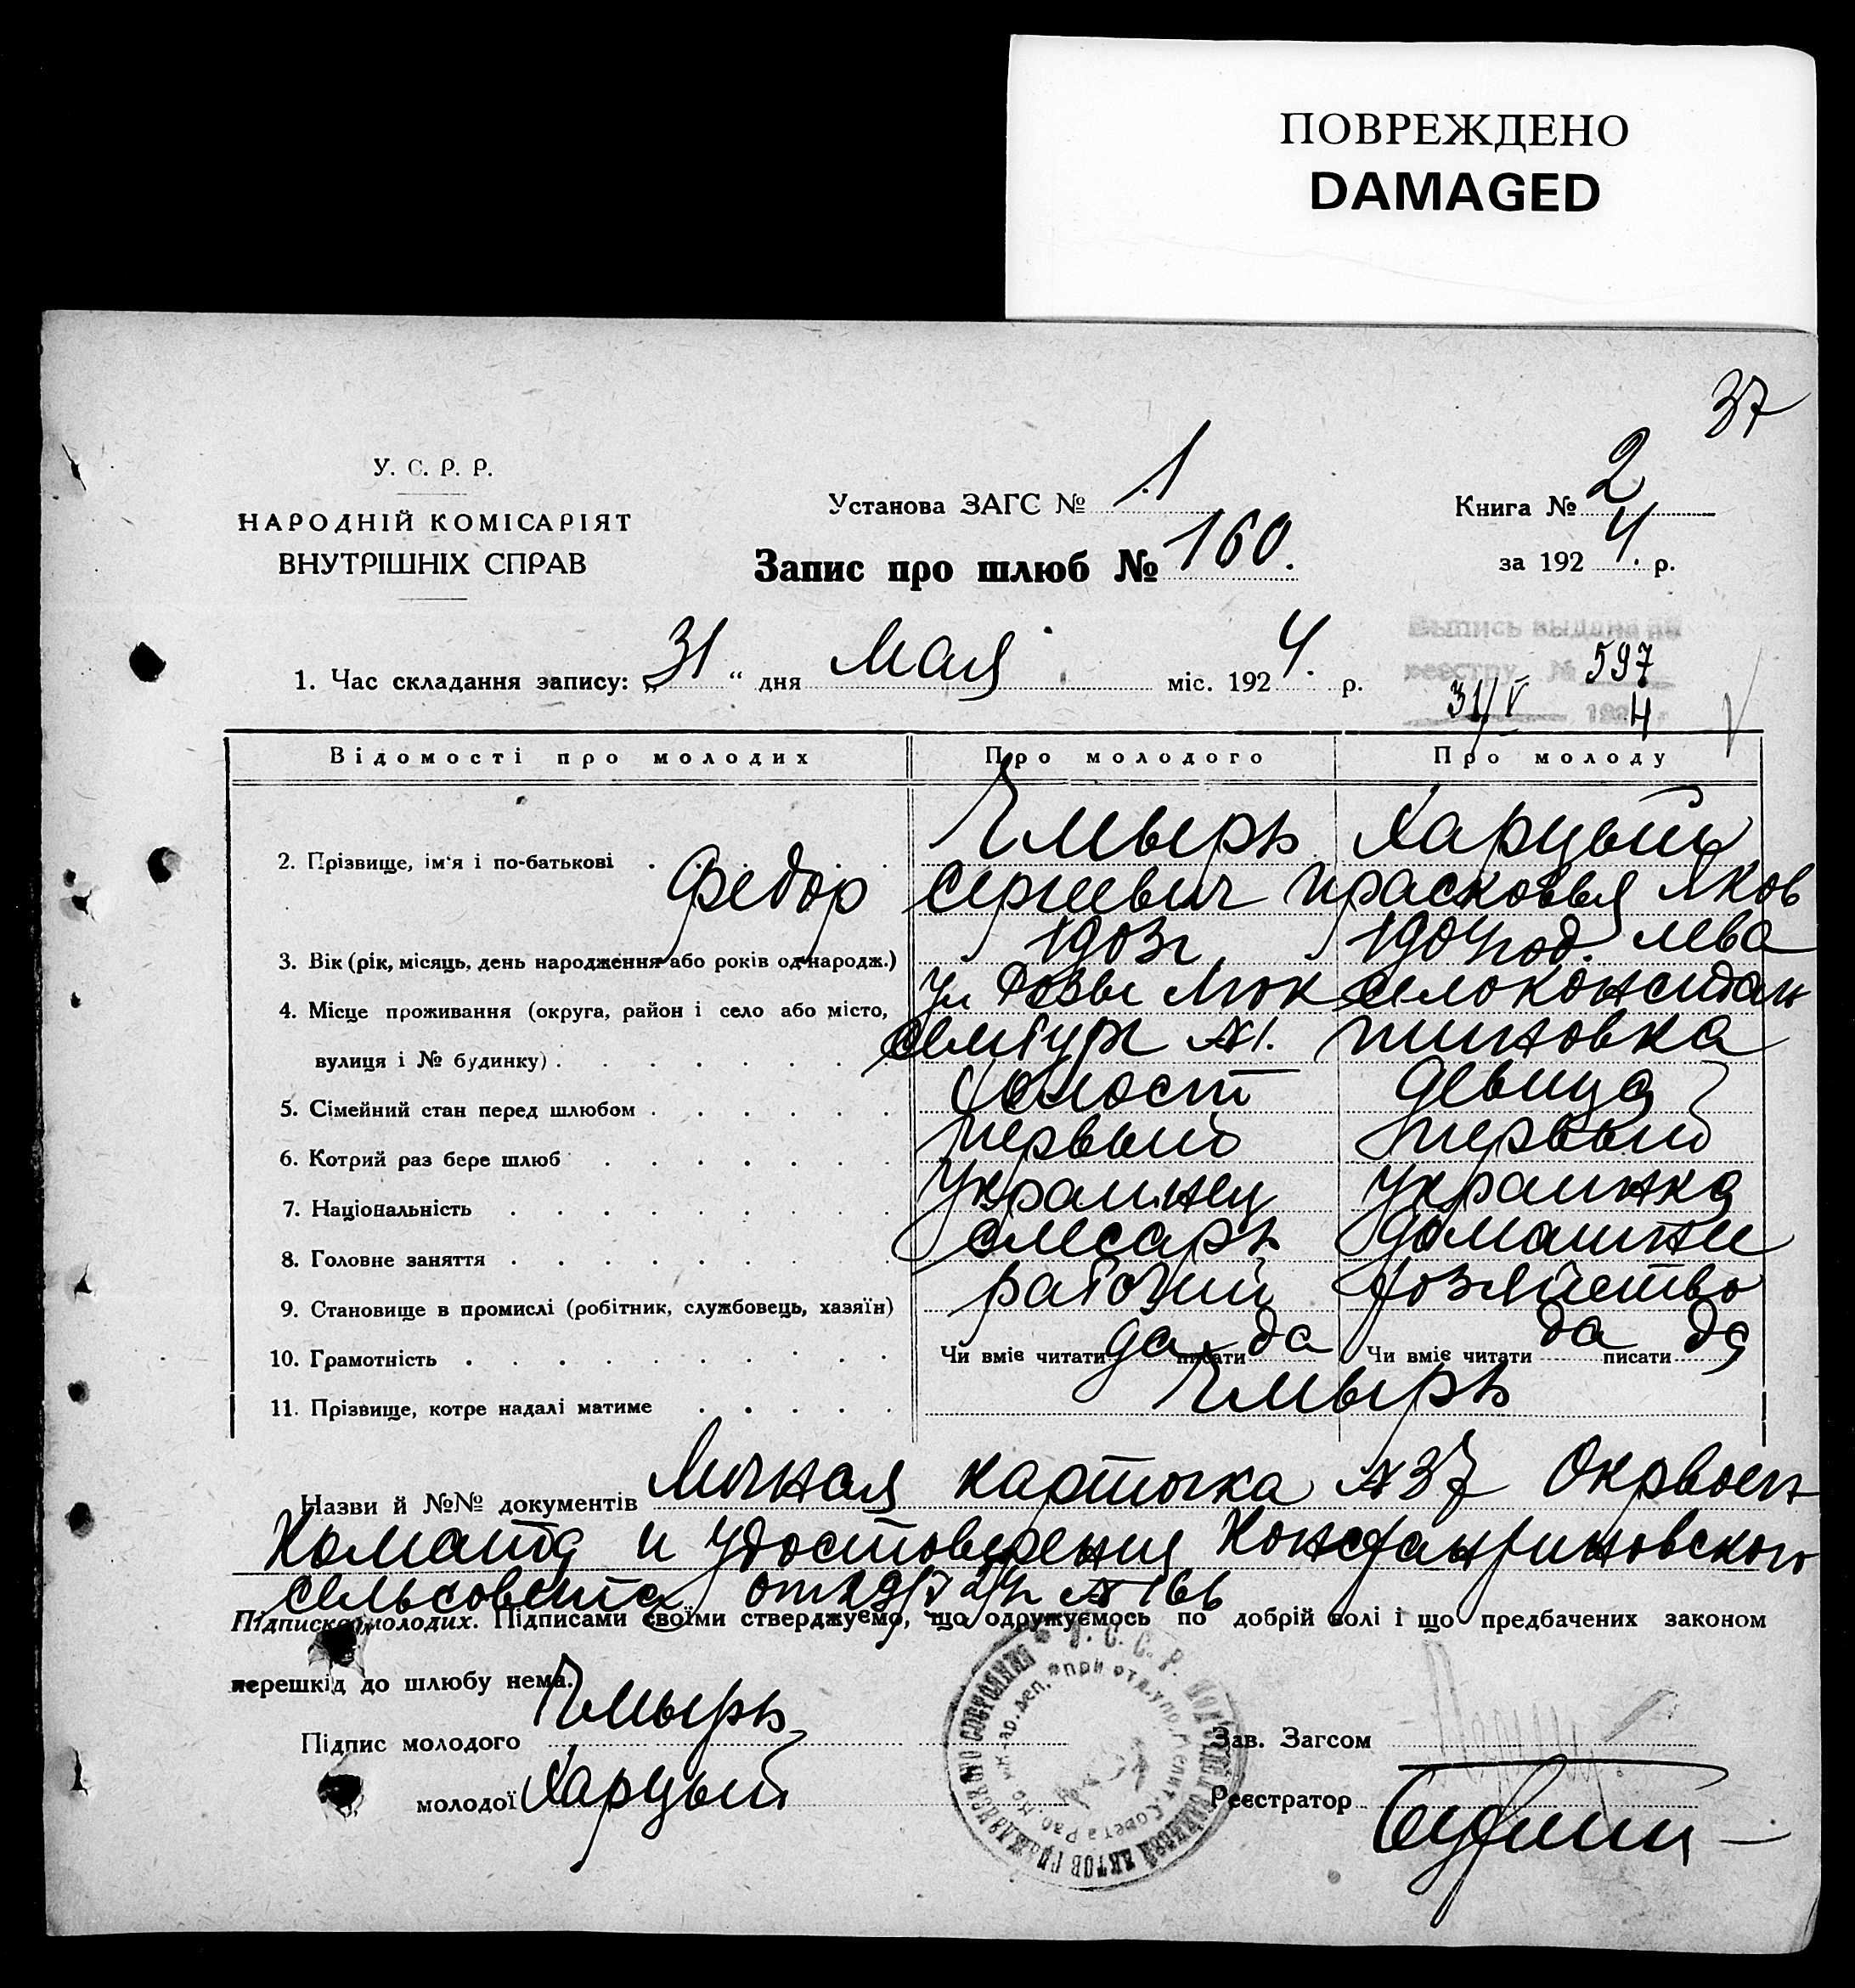 ПОВРЕЖДЕНО
DAMAGED
37
У. С. Р. Р.
НАРОДНІЙ КОМІСАРІЯТ
ВНУТРІШНІХ СПРАВ
Установа ЗАГС № 1
Запис про шлюб № 160.
Книга № 2
за 1924. р.
1. Час складання запису: „31“ дня Мая міс. 1924. р.
выпись выдана по
реестру № 597
31/V 1924 г
Відомості про молодих Про молодого Про молоду
2. Прізвище, ім'я і по-батькові Чмырь Харцый
Федор Сергеевич Прасковья Яков
лева
3. Вік (рік, місяць, день народження або років од народж.) 1903г 1904 год.
4. Місце проживання (округа, район і село або місто, Ул Розы Люк село Констан
вулиця і № будинку) сембург №1. тиновка
5. Сімейний стан перед шлюбом Холост девица
6. Котрий раз бере шлюб первый первый
7. Національність Украинец Украинка
8. Головне заняття слесарь домашнее
9. Становище в промислі (робітник, службовець, хазяїн) рабочий хозяйство
10. Грамотність Чи вміє читати да писати да Чи вміє читати да писати да
11. Прізвище, котре надалі матиме Чмырь
Назви й №№ документів Личная карточка №37 Окрвоен
Комата и удостоверения Константиновского
сельсовета от 29/V 24г № 166
Підписка молодих. Підписами своїми стверджуємо, що одружуємось по добрій волі і що предбачених законом
перешкід до шлюбу нема.
Підпис молодого Чмырь
молодої Харцый
Зав. Загсом
Реєстратор
У. С. С. Р. Подотдел записей актов гражданского состояния
при отд. упр. Мелит. Совета Раб.